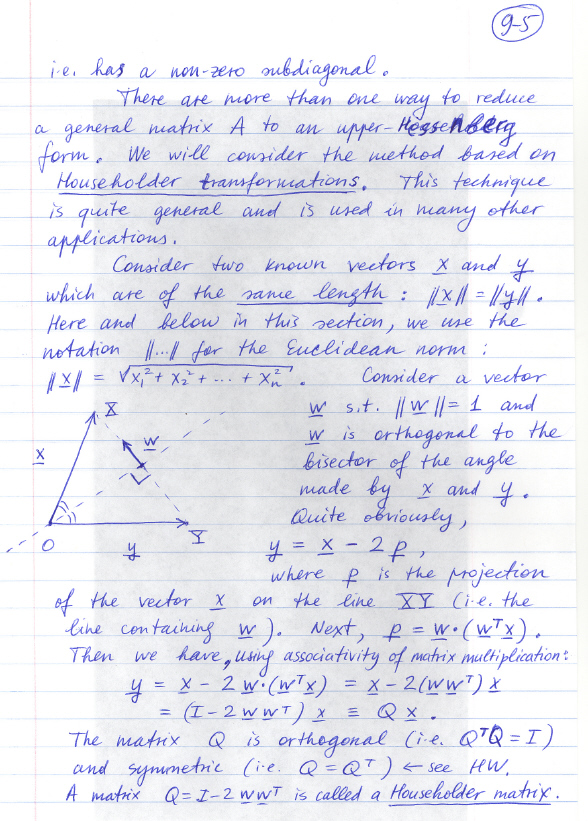 9-5
i.e. has a non-zero subdiagonal.
There are more than one way to reduce
a general matrix A to an upper-Hessenberg
form. We will consider the method based on
Householder transformations. This technique
is quite general and is used in many other
applications.
Consider two known vectors x and y
which are of the same length : ||x|| = ||y||.
Here and below in this section, we use the
notation ||...|| for the Euclidean norm :
||x|| = √(x₁² + x₂² + ... + xₙ²) . Consider a vector
w s.t. ||w|| = 1 and
w is orthogonal to the
bisector of the angle
made by x and y.
Quite obviously,
y = x - 2p ,
where p is the projection
X
x
w
O
y
Y
of the vector x on the line XY (i.e. the
line containing w ). Next, p = w·(wᵀx) .
Then we have, using associativity of matrix multiplication:
y = x - 2 w·(wᵀx) = x - 2(wwᵀ) x
= (I - 2 wwᵀ) x ≡ Q x .
The matrix Q is orthogonal (i.e. QᵀQ = I)
and symmetric (i.e. Q = Qᵀ) ← see HW.
A matrix Q = I - 2 wwᵀ is called a Householder matrix.